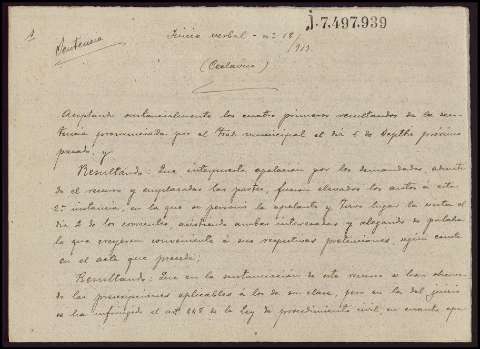 J.7.497.939
1
Sentencia
Juicio verbal - nº 18/
/913
Aceptando sustancialmente los cuatro primeros resultandos de la sen-
tencia pronunciada por el Trib. municipal el día 6 de Septbre próximo
pasado, y
Resultando: Que interpuesta apelacion por los demandados, admiti-
do el recurso y emplazadas las partes, fueron elevados los autos á esta
2ª instancia, en la que se personó la apelante y tuvo lugar la vista el
día 2 de los corrientes, asistiendo ambos interesados y alegando de palabra
lo que creyeron conveniente á sus respectivas pretensiones, según consta
en el acta que precede;
Resultando: Que en la sustanciación de este recurso se han observa-
do las prescripciones aplicables á los de su clase, pero en la del juicio
se ha infringido el artº 248 de la Ley de procedimiento civil, en cuanto que